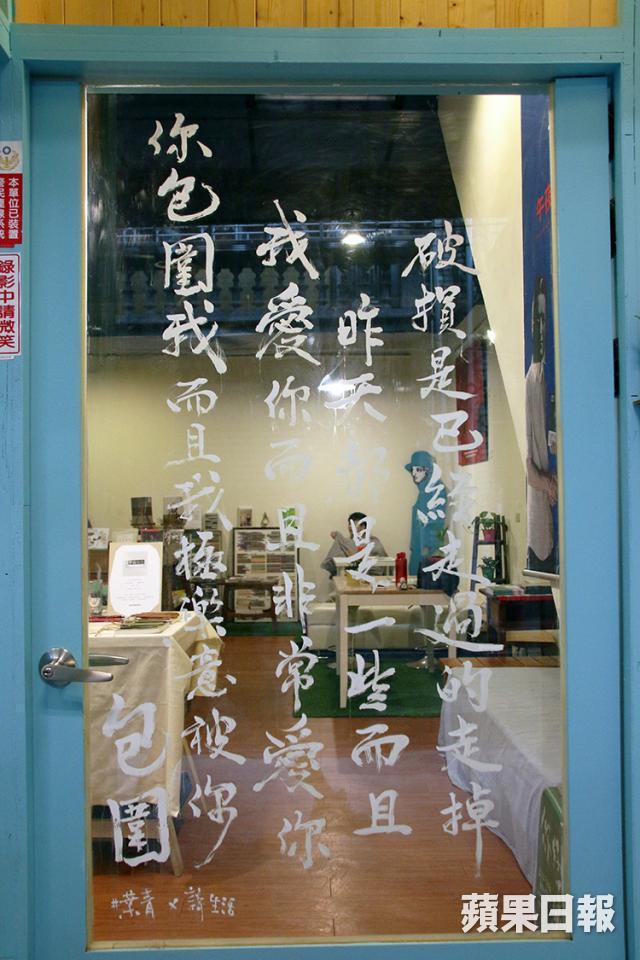 破損是已經走過的走掉
昨天都是一些而且
我愛你而且非常愛你
你包圍我而且我極樂意被你
包圍
#葉青 x 詩生活
本單位已裝置
警民連線系統
錄影中請微笑
蘋果日報